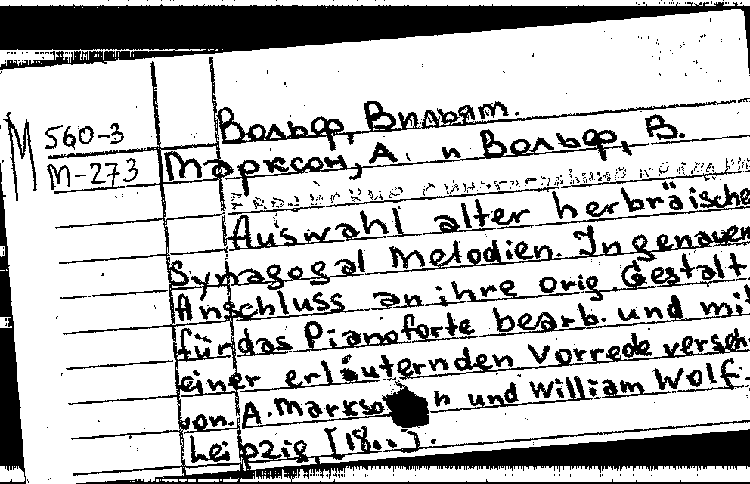 M 560-3
M-273
Вольф, Вильям.
Марксон, А. и Вольф, В.
Еврейские синагогальные мелодии
Auswahl alter herbräische
Synagogal Melodien. In genauem
Anschluss an ihre orig. Gestalt
für das Pianoforte bearb. und mit
einer erläuternden Vorrede verseh
von. A. Markso n und William Wolf.
Leipzig, [18..].